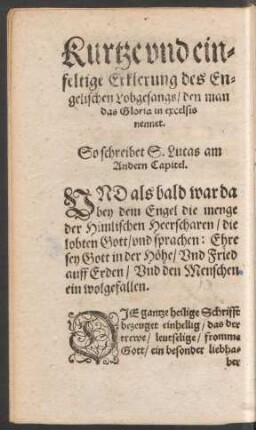 Kurtze vnd ein-
feltige Erklerung des En-
gelischen Lobgesangs / den man
das Gloria in excelsis
nennet.
So schreibet S. Lucas am
Andern Capitel.
VND als bald war da
bey dem Engel die menge
der Himlischen Heerscharen / die
lobten Gott / vnd sprachen: Ehre
sey Gott in der Höhe / Vnd Fried
auff Erden / Vnd den Menschen
ein wolgefallen.
DIE gantze heilige Schrifft
bezeuget einhellig / das der
trewe / leutselige / fromme
Gott / ein besonder liebha-
ber